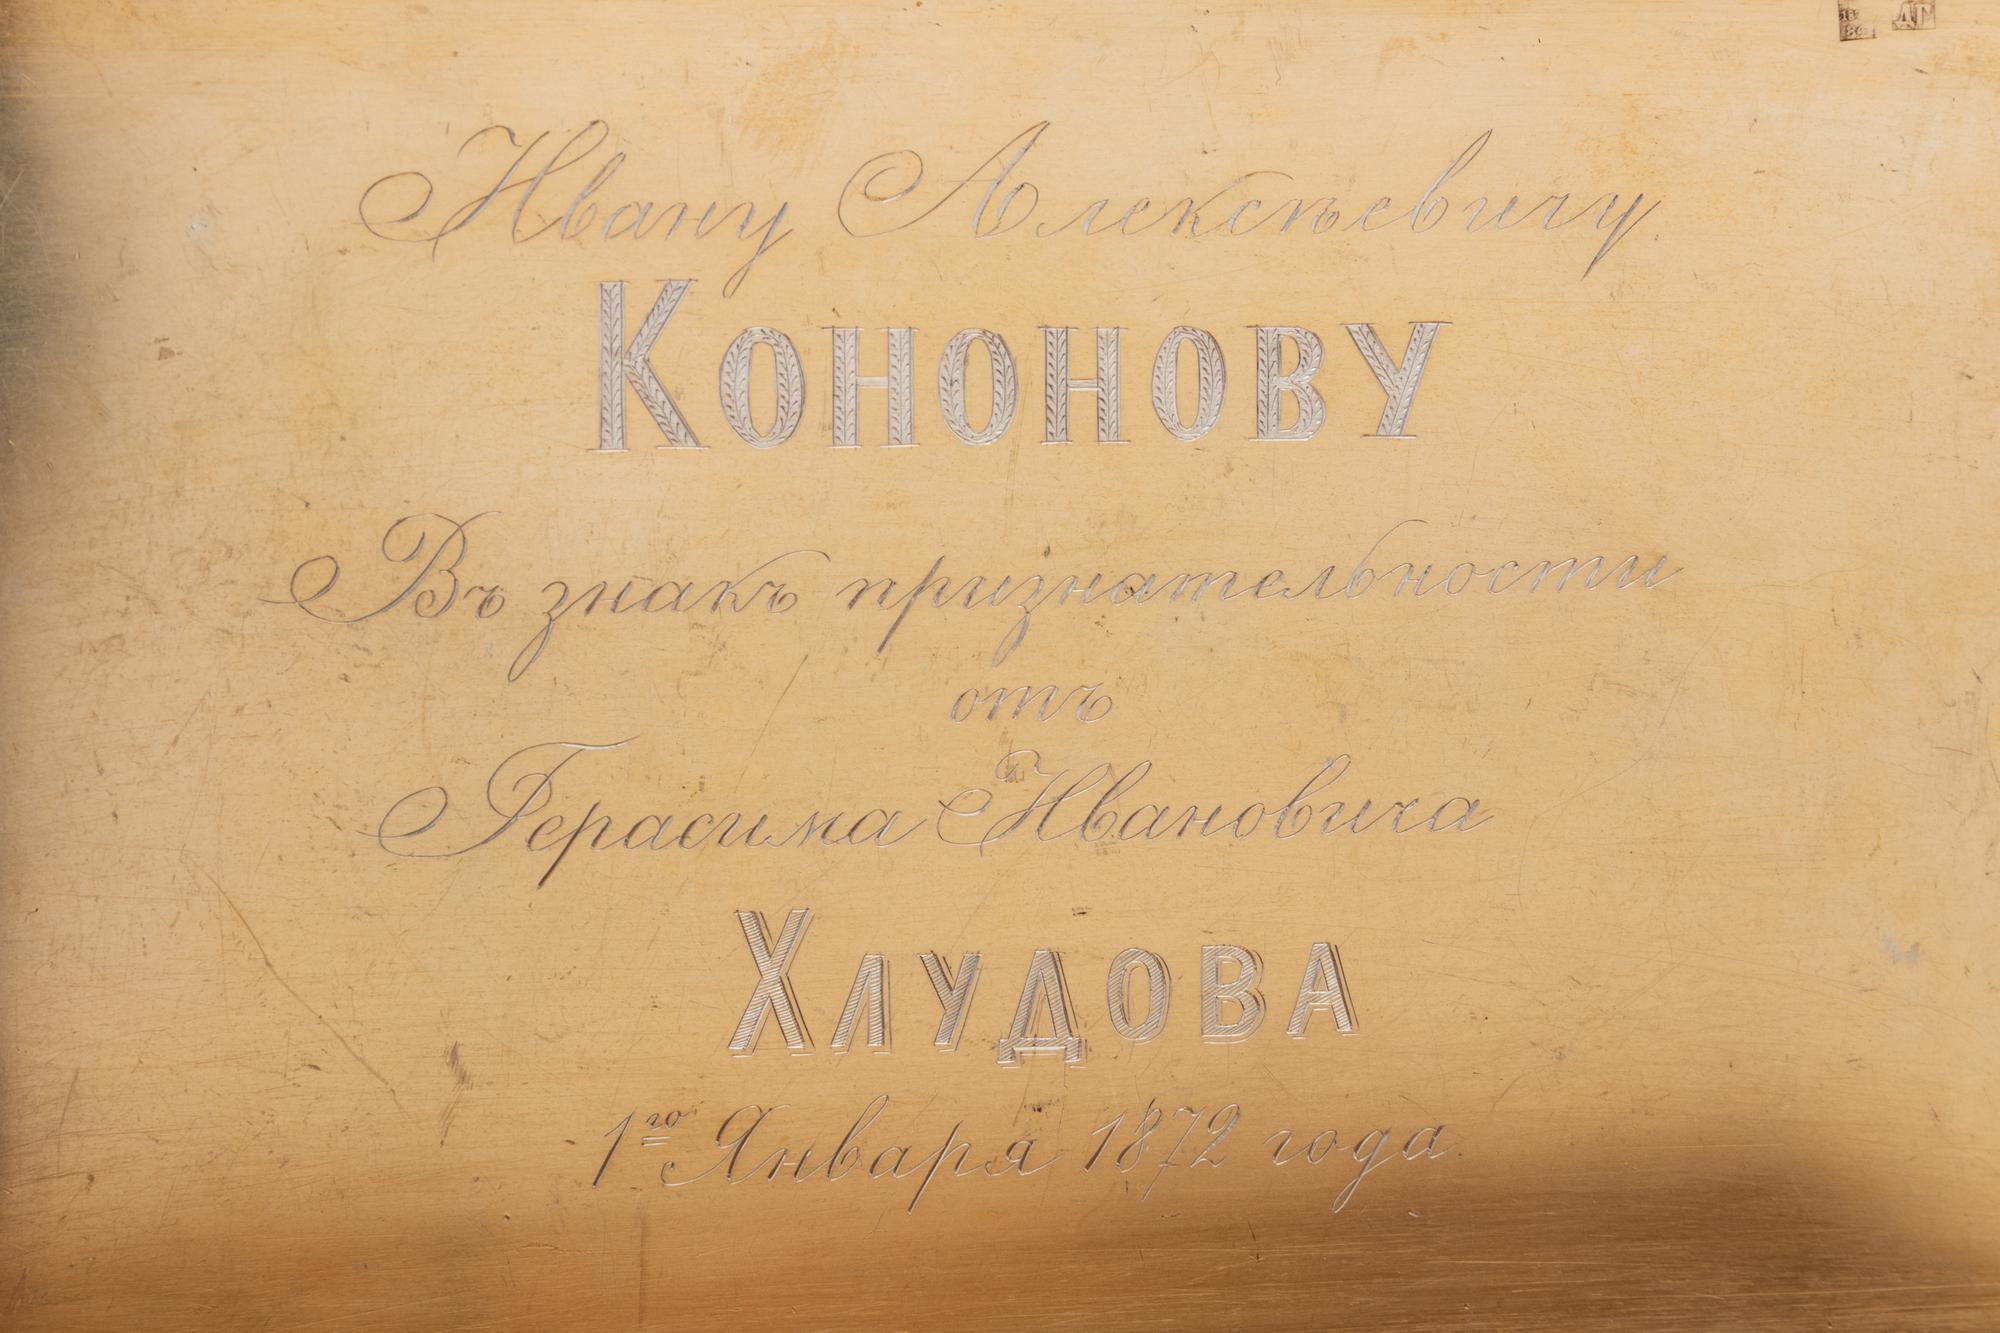 АГ
Ивану Алексѣевичу
Кононову
Въ знакъ признательности
отъ
Герасима Ивановича
Хлудова
1го Января 1872 года.